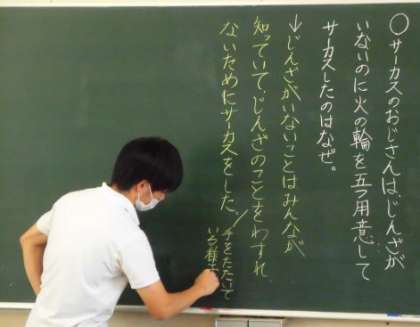 ○サーカスのおじさんは、じんざが
いないのに火の輪を五つ用意して
サーカスしたのはなぜ。
↓じんざがいないことはみんなが
知っていて、じんざのことをわすれ
ないためにサーカスをした。
手をたたいて
いる様